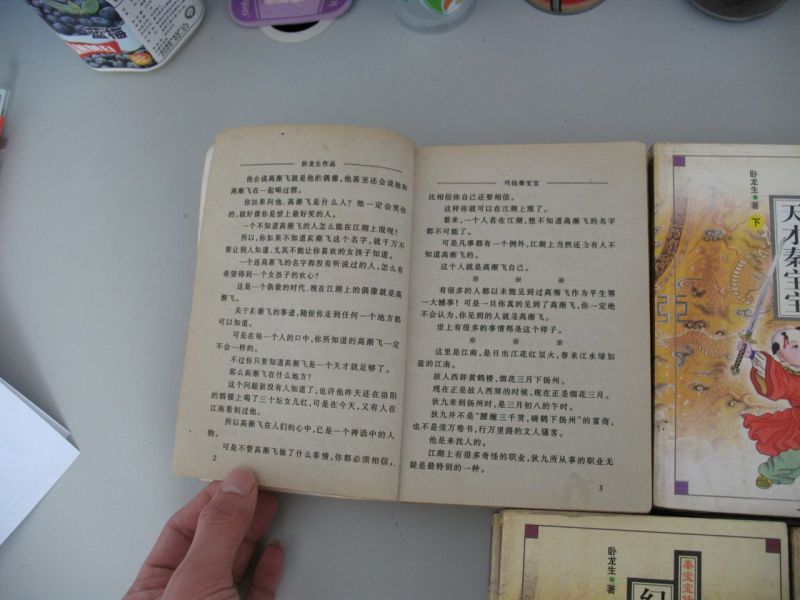 蓝莓
卧龙生作品
他会说高渐飞就是他的偶像,他甚至还会说他和
高渐飞在一起喝过酒。
你如果问他,高渐飞是什么人?他一定会笑你
的,就好像你是世上最好笑的人。
一个不知道高渐飞的人怎么能在江湖上混呢?
所以,你如果不知道高渐飞这个名字,就千万不
要让别人知道,尤其不能让你喜欢的女孩子知道。
一个连高渐飞的名字都没有听说过的人,怎么有
希望得到一个女孩子的欢心?
这是一个偶像的时代,现在江湖上的偶像就是高
渐飞。
关于高渐飞的事迹,随便你走到任何一个地方都
可以知道。
可是在每一个人的口中,你所知道的高渐飞一定
不会一样的。
不过你只要知道高渐飞是一个天才就足够了。
那么高渐飞在什么地方?
这个问题很没有人知道了;也许他昨天还在洛阳
的酒楼上喝了三十坛女儿红,可是在今天,又有人在
江南看到过他。
所以高渐飞在人们的心中,已是一个神话中的人
物。
可是不管高渐飞做了什么事情,你都必须相信,
2
巧仙秦宝宝
比相信你自己还要相信。
这样你就可以在江湖上现了。
看来,一个人若在江湖,想不知道高渐飞的名字
都不可能了。
可是凡事都有一个例外,江湖上当然还会有人不
知道高渐飞的。
这个人就是高渐飞自己。
※ ※ ※
有很多的人都以未能见到过高渐飞作为平生第
一大憾事!可是一旦你真的见到了高渐飞,你一定绝
不会认为,你见到的人就是高渐飞。
世上有很多的事情都是这个样子。
※ ※ ※
这里是江南,是日出江花红似火,春来江水绿如
蓝的江南。
故人西辞黄鹤楼,烟花三月下扬州。
现在正是故人西辞的时候,现在正是烟花三月。
狄九来到扬州时,是三月初八的午时。
狄九并不是“腰缠三千贯,骑鹤下扬州”的富商,
也不是读万卷书,行万里路的文人骚客。
他是来找人的。
江湖上有很多奇怪的职业,狄九所从事的职业无
疑是最特别的一种。
3
卧龙生 著
下
天才秦宝宝
卧龙生 著
秦宝宝